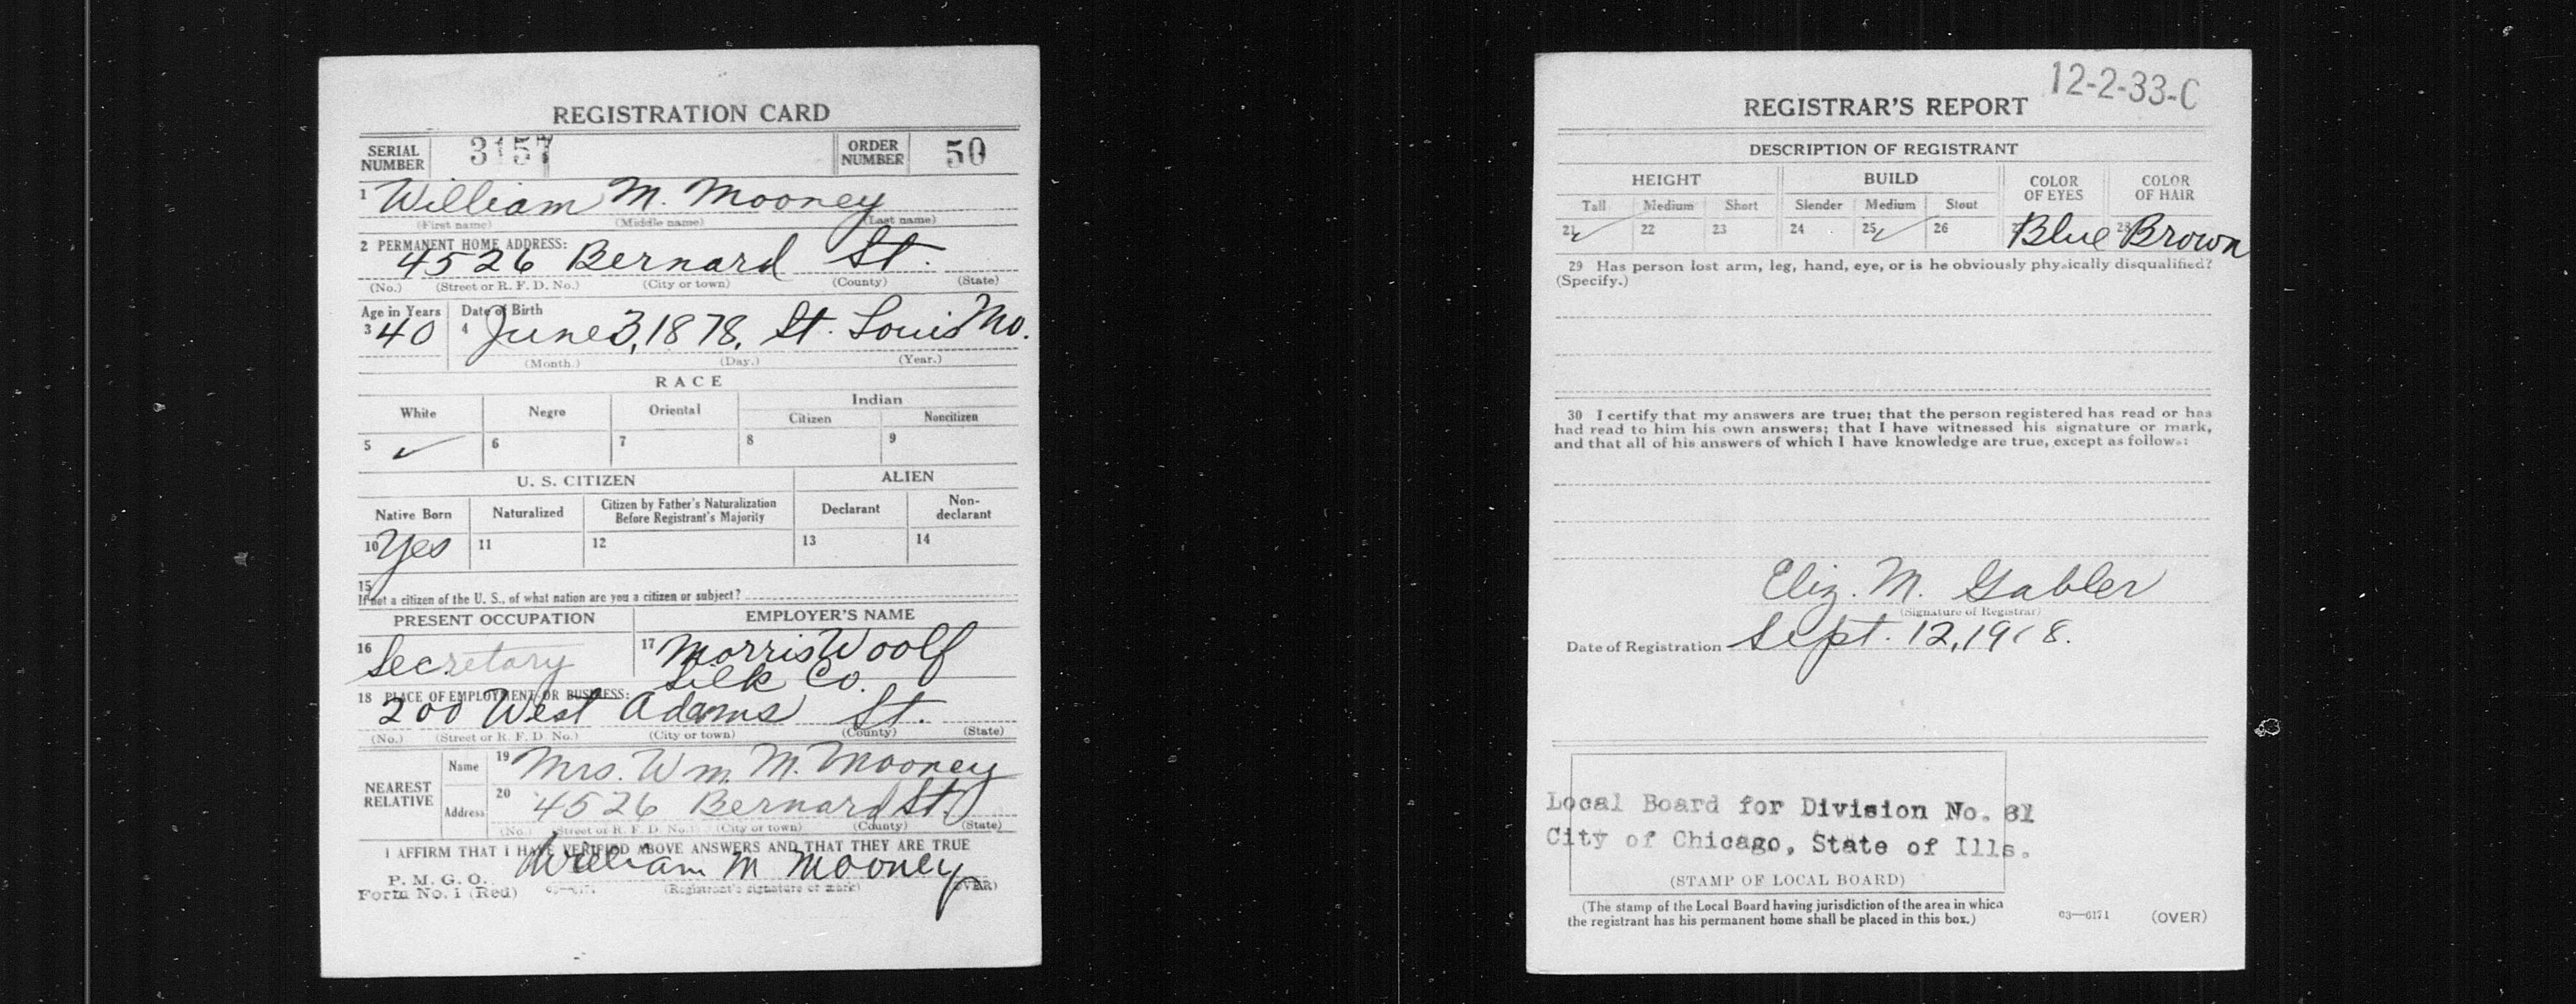 REGISTRATION CARD
SERIAL NUMBER 3157 ORDER NUMBER 50
1 William M. Mooney
(First name) (Middle name) (Last name)
2 PERMANENT HOME ADDRESS:
4526 Bernard St.
(No.) (Street or R. F. D. No.) (City or town) (County) (State)
Age in Years Date of Birth
3 40 4 June 3, 1878, St. Louis Mo.
(Month.) (Day.) (Year.)
RACE
White Negro Oriental Indian
Citizen Noncitizen
5 ✓ 6 7 8 9
U. S. CITIZEN ALIEN
Native Born Naturalized Citizen by Father's Naturalization Before Registrant's Majority Declarant Non-declarant
10 Yes 11 12 13 14
15
If not a citizen of the U. S., of what nation are you a citizen or subject?
PRESENT OCCUPATION EMPLOYER'S NAME
16 Secretary 17 Morris Woolf
Silk Co.
18 PLACE OF EMPLOYMENT OR BUSINESS:
200 West Adams St.
(No.) (Street or R. F. D. No.) (City or town) (County) (State)
NEAREST RELATIVE
Name 19 Mrs. Wm. M. Mooney
Address 20 4526 Bernard St.
(No.) (Street or R. F. D. No.) (City or town) (County) (State)
I AFFIRM THAT I HAVE VERIFIED ABOVE ANSWERS AND THAT THEY ARE TRUE
William M Mooney
P. M. G. O.
Form No. 1 (Red) (Registrant's signature or mark) (OVER)
12-2-33-C
REGISTRAR'S REPORT
DESCRIPTION OF REGISTRANT
HEIGHT BUILD COLOR OF EYES COLOR OF HAIR
Tall Medium Short Slender Medium Stout
21 ✓ 22 23 24 25 ✓ 26 27 Blue 28 Brown
29 Has person lost arm, leg, hand, eye, or is he obviously physically disqualified?
(Specify.)
30 I certify that my answers are true; that the person registered has read or has
had read to him his own answers; that I have witnessed his signature or mark,
and that all of his answers of which I have knowledge are true, except as follows:
Eliz. M. Gabler
(Signature of Registrar)
Date of Registration Sept. 12, 1918.
Local Board for Division No. 81
City of Chicago, State of Ills.
(STAMP OF LOCAL BOARD)
(The stamp of the Local Board having jurisdiction of the area in which
the registrant has his permanent home shall be placed in this box.)
03—6171 (OVER)